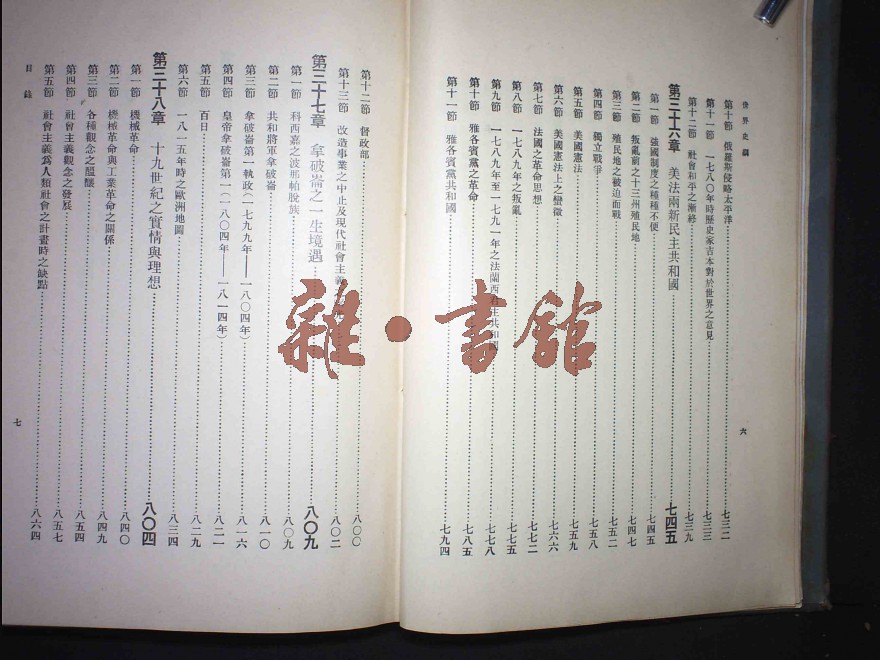 世界史綱
第十節　俄羅斯侵略太平洋……七三二
第十一節　一七八〇年時歷史家吉本對於世界之意見……七三三
第十二節　社會和平之漸終……七三九
第三十六章　美法兩新民主共和國……七四五
第一節　強國制度之種種不便……七四五
第二節　叛亂前之十三州殖民地……七四七
第三節　殖民地之被迫而戰……七五二
第四節　獨立戰爭……七五八
第五節　美國憲法……七五九
第六節　美國憲法上之蠻徵……七六六
第七節　法國之革命思想……七七二
第八節　一七八九年之叛亂……七七五
第九節　一七八九年至一七九一年之法蘭西君主共和國……七七八
第十節　雅各賓黨之革命……七八五
第十一節　雅各賓黨共和國……七九四
六
第十二節　督政部……八〇〇
第十三節　改造事業之中止及現代社會主義……八〇二
第三十七章　拿破崙之一生境遇……八〇九
第一節　科西嘉之波那帕脫族……八〇九
第二節　共和將軍拿破崙……八一〇
第三節　拿破崙第一執政（一七九九年——一八〇四年）……八一六
第四節　皇帝拿破崙第一（一八〇四年——一八一四年）……八二一
第五節　百日……八二九
第六節　一八一五年時之歐洲地圖……八三四
第三十八章　十九世紀之實情與理想……八〇四
第一節　機械革命……八四〇
第二節　機械革命與工業革命之關係……八四九
第三節　各種觀念之醞釀……八五四
第四節　社會主義觀念之發展……八五七
第五節　社會主義為人類社會之計畫時之缺點……八六四
目錄
七
雜·書館